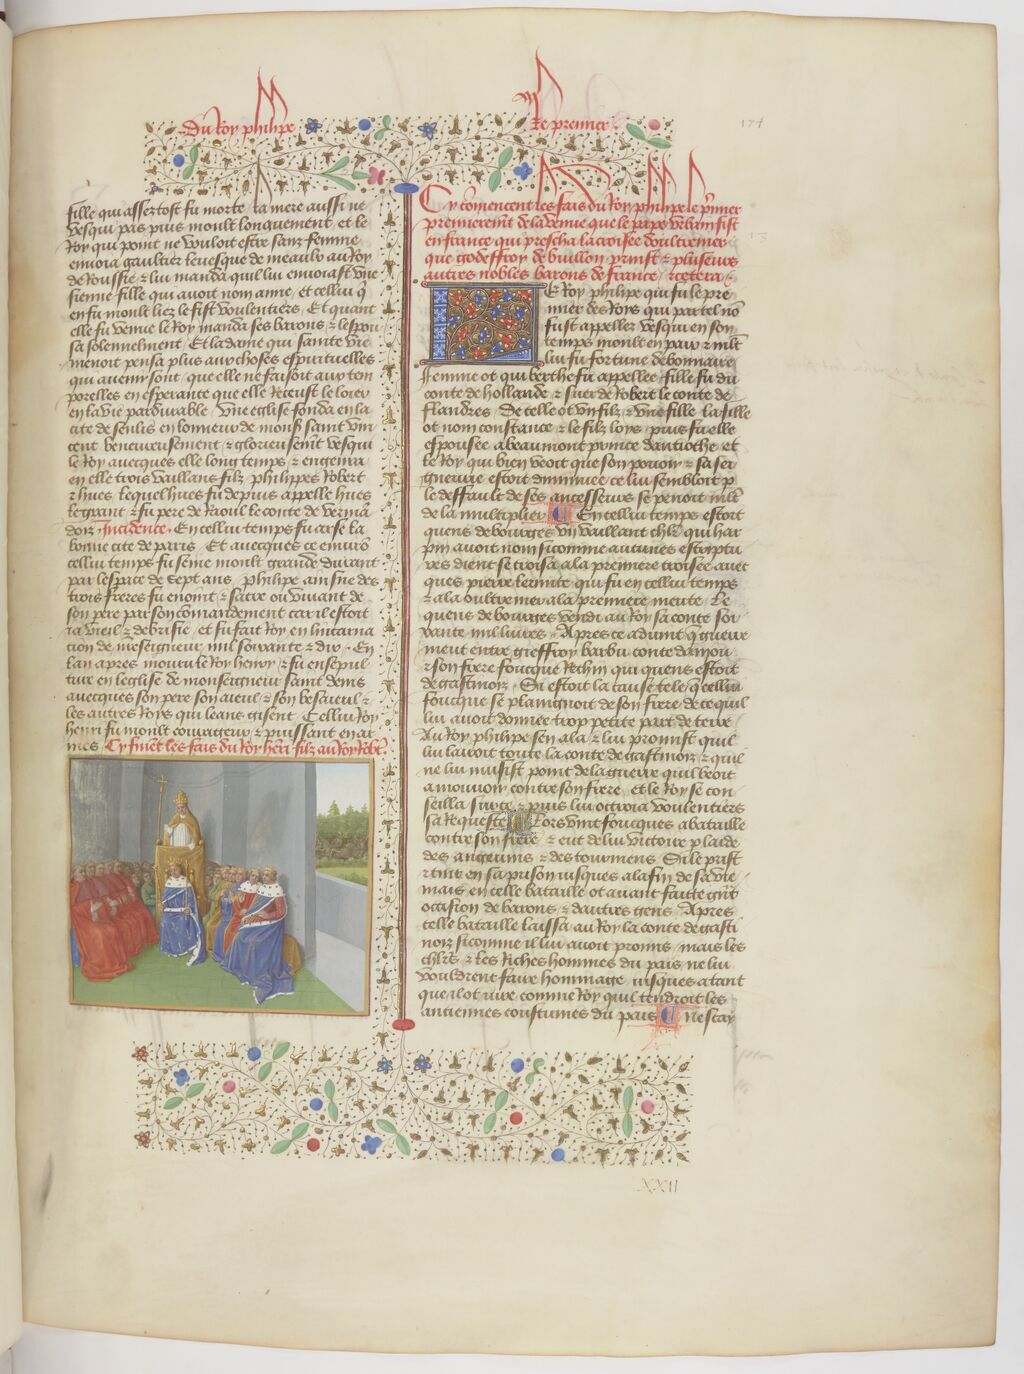 Du Roy phelipe
Le premier
174
fille qui assez tost fu morte la mere aussi ne
vesqui pas puis moult longuement et le
Roy qui point ne vouloit estre sanz femme
envoia gaultier levesque de meaulx au Roy
de Roussie ⁊ lui manda quil lui envoiast vne
sienne fille qui avoit nom anne et cellui q̄
en fu moult liez le fist voulentiers Et quant
elle fu venue le Roy manda ses barons ⁊ lespou
sa solennelment Et la dame qui sainte vie
menoit pensa plus aux choses espirituelles
qui avenir sont que elle ne faisoit aux tem
porelles en esperance que elle Receust le loier
en la vie pardurable vne eglise fonda en la
cite de senlis en lonneur de monss saint vin
cent beneureusement ⁊ glorieusemēt vesqui
le Roy avecques elle long temps ⁊ engenra
en elle trois vaillans filz philippes Robert
⁊ hues lequel hues fu depuis appelle hues
le grant ⁊ fu pere de Raoul le conte de verman
dois Incidence En cellui temps fu arse la
bonne cite de paris Et avecques ce environ
cellui temps fu femine moult grande durant
par lespace de sept ans phelipe ainsne des
trois freres fu enoint ⁊ sacre ou vivant de
son pere par son commandement car il estoit
ia vieil ⁊ debrisie et fu fait Roy en lincarna
cion de nreseigneur mil soixante ⁊ dix En
lan apres mouru le Roy henry ⁊ fu ensepul
ture en leglise de monseigneur saint denis
avecques son pere son aieul ⁊ son besaieul ⁊
les autres Roys qui leans gisent Cellui Roy
henri fu moult courageux ⁊ puissant en ar
mes Cy finēt les fais du Roy hēri filz au Roy Robt
Cy cōmencent les fais du Roy phelipe le p̄mier
premieremt de la venue que le pape vrbain fist
en france qui prescha la croisee doultremer
que godeffroy de buillon prinst ⁊ plusieurs
autres nobles barons de france ⁊cetera
LE Roy phelipe qui fu le pre
mier des Roys qui par tel nō
fust appellez vesqui en son
temps moult en paix ⁊ mlt
lui fu fortune debonnaire
femme ot qui berthe fu appellee fille fu du
conte de hollande ⁊ suer de Robert le conte de
flandres De celle ot vn filz ⁊ vne fille la fille
ot nom constance ⁊ le filz loys puis fu elle
espousee a beaumont prince dantioche et
le Roy qui bien veoit que son pouoir ⁊ sa sei
gneurie estoit diminuee ce lui sembloit p
le deffault de ses ancesseurs se penoit mlt
de la multiplier En cellui temps estoit
quens de bourges vn vaillant chlr qui har
pin avoit nom sicomme aucunes escriptu
res dient se croisa a la premiere croisee avec
ques pierre lermite qui fu en cellui temps
⁊ ala oultremer a la premiere meute Le
quens de bourges vendi au Roy sa conte soi
xante mil livres Apres ce advint q̄ guerre
meut entre gieffroy barbu conte danjou
⁊ son frere foucque Rechin qui quens estoit
de gastinois Si estoit la cause tele q̄ cellui
foucque se plaingnoit de son frere de ce quil
lui avoit donnee trop petite part de terre
Au Roy phelipe sen ala ⁊ lui promist quil
lui lairoit toute la conte de gastinois ⁊ quil
ne lui nuisist point de la guerre quil beoit
a mouvoir contre son frere et le Roy se con
seilla sur ce ⁊ puis lui octroia voulentiers
sa Requeste Lors vint foucques a bataille
contre son frere ⁊ eut de lui victoire p laide
des angevins ⁊ des tourniens Si le prist
⁊ tint en sa prison iusques a la fin de sa vie
mais en celle bataille ot avant faitte grāt
occasion de barons ⁊ dautres gens Apres
celle bataille laissa au Roy la conte de gasti
nois sicomme il lui avoit promis mais les
chlrs ⁊ les Riches hommes du pais ne lui
vouldrent faire hommage iusques a tant
que il ot iure comme Roy quil tendroit les
anciennes coustumes du pais Ne scay
XXII